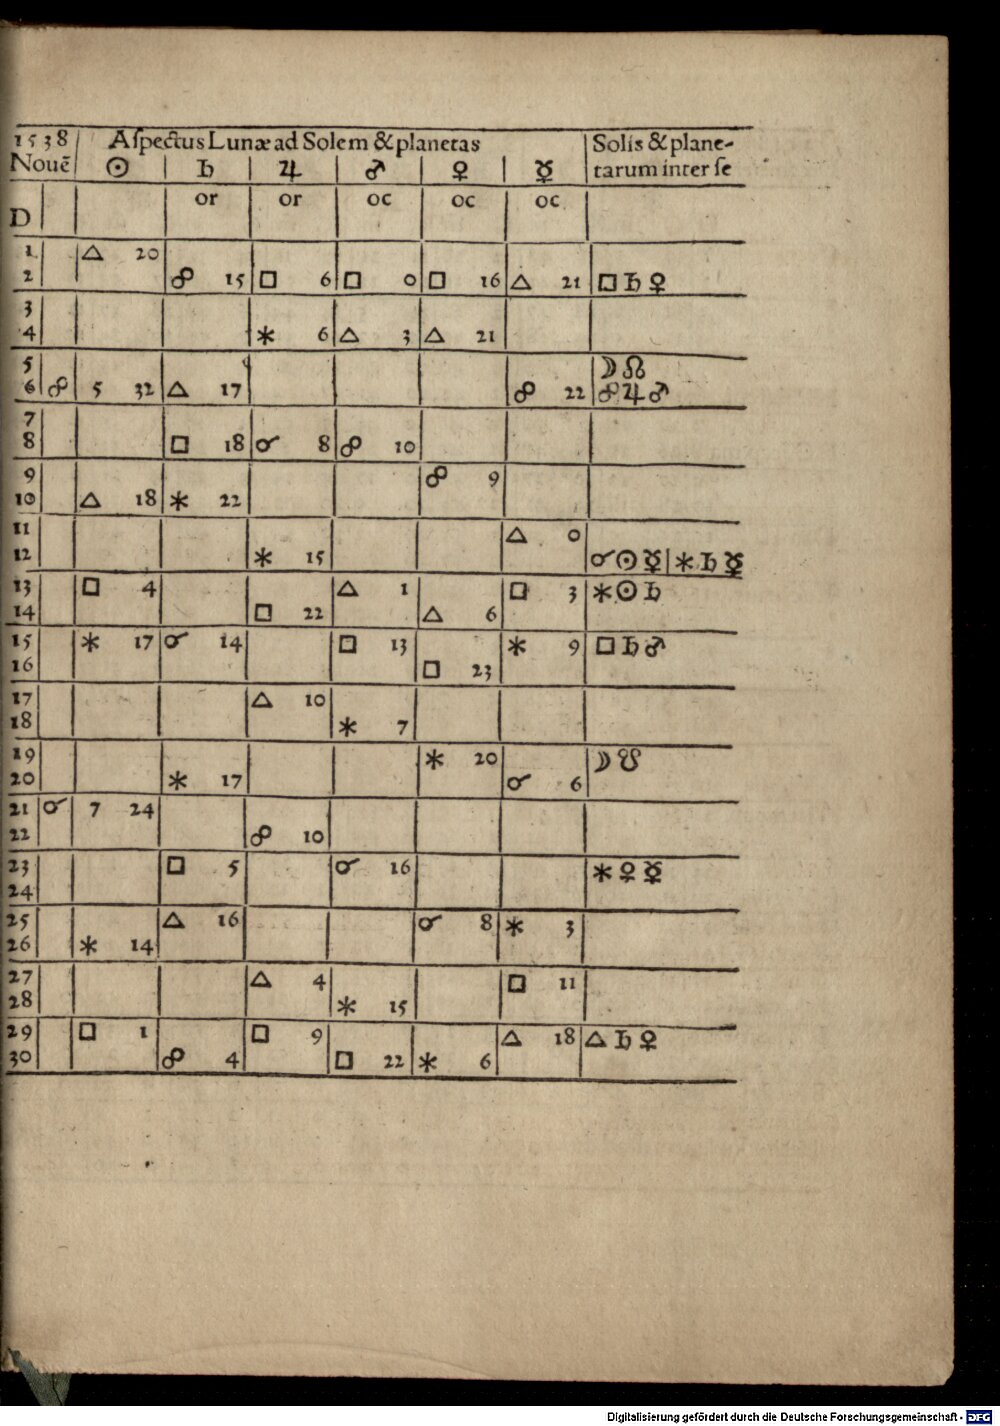 1538 Aſpectus Lunæ ad Solem & planetas Solis & plane-
Nouē ☉ ♄ ♃ ♂ ♀ ☿ tarum inter ſe
D or or oc oc oc
1 △ 20
2 ☍ 15 □ 6 □ 0 □ 16 △ 21 □ ♄ ♀
3
4 ⚹ 6 △ 3 △ 21
5 ☽ ☊
6 ☍ 5 32 △ 17 ☍ 22 ☍ ♃ ♂
7
8 □ 18 ☌ 8 ☍ 10
9 ☍ 9
10 △ 18 ⚹ 22
11 △ 0
12 ⚹ 15 ☌ ☉ ☿ | ⚹ ♄ ☿
13 □ 4 △ 1 □ 3 ⚹ ☉ ♄
14 □ 22 △ 6
15 ⚹ 17 ☌ 14 □ 13 ⚹ 9 □ ♄ ♂
16 □ 23
17 △ 10
18 ⚹ 7
19 ⚹ 20 ☽ ☋
20 ⚹ 17 ☌ 6
21 ☌ 7 24
22 ☍ 10
23 □ 5 ☌ 16 ⚹ ♀ ☿
24
25 △ 16 ☌ 8 ⚹ 3
26 ⚹ 14
27 △ 4 □ 11
28 ⚹ 15
29 □ 1 □ 9 △ 18 △ ♄ ♀
30 ☍ 4 □ 22 ⚹ 6
Digitalisierung gefördert durch die Deutsche Forschungsgemeinschaft - DFG